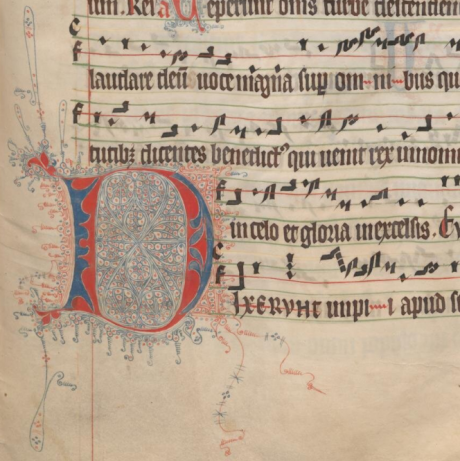 ceperunt om̄s turbe
laudare deū uoce magna sup om ni bus
dicentes benedict⁹ qui uenit rex in nomi
in celo et gloria in excelsis.
DIXERVNT impi i apud se